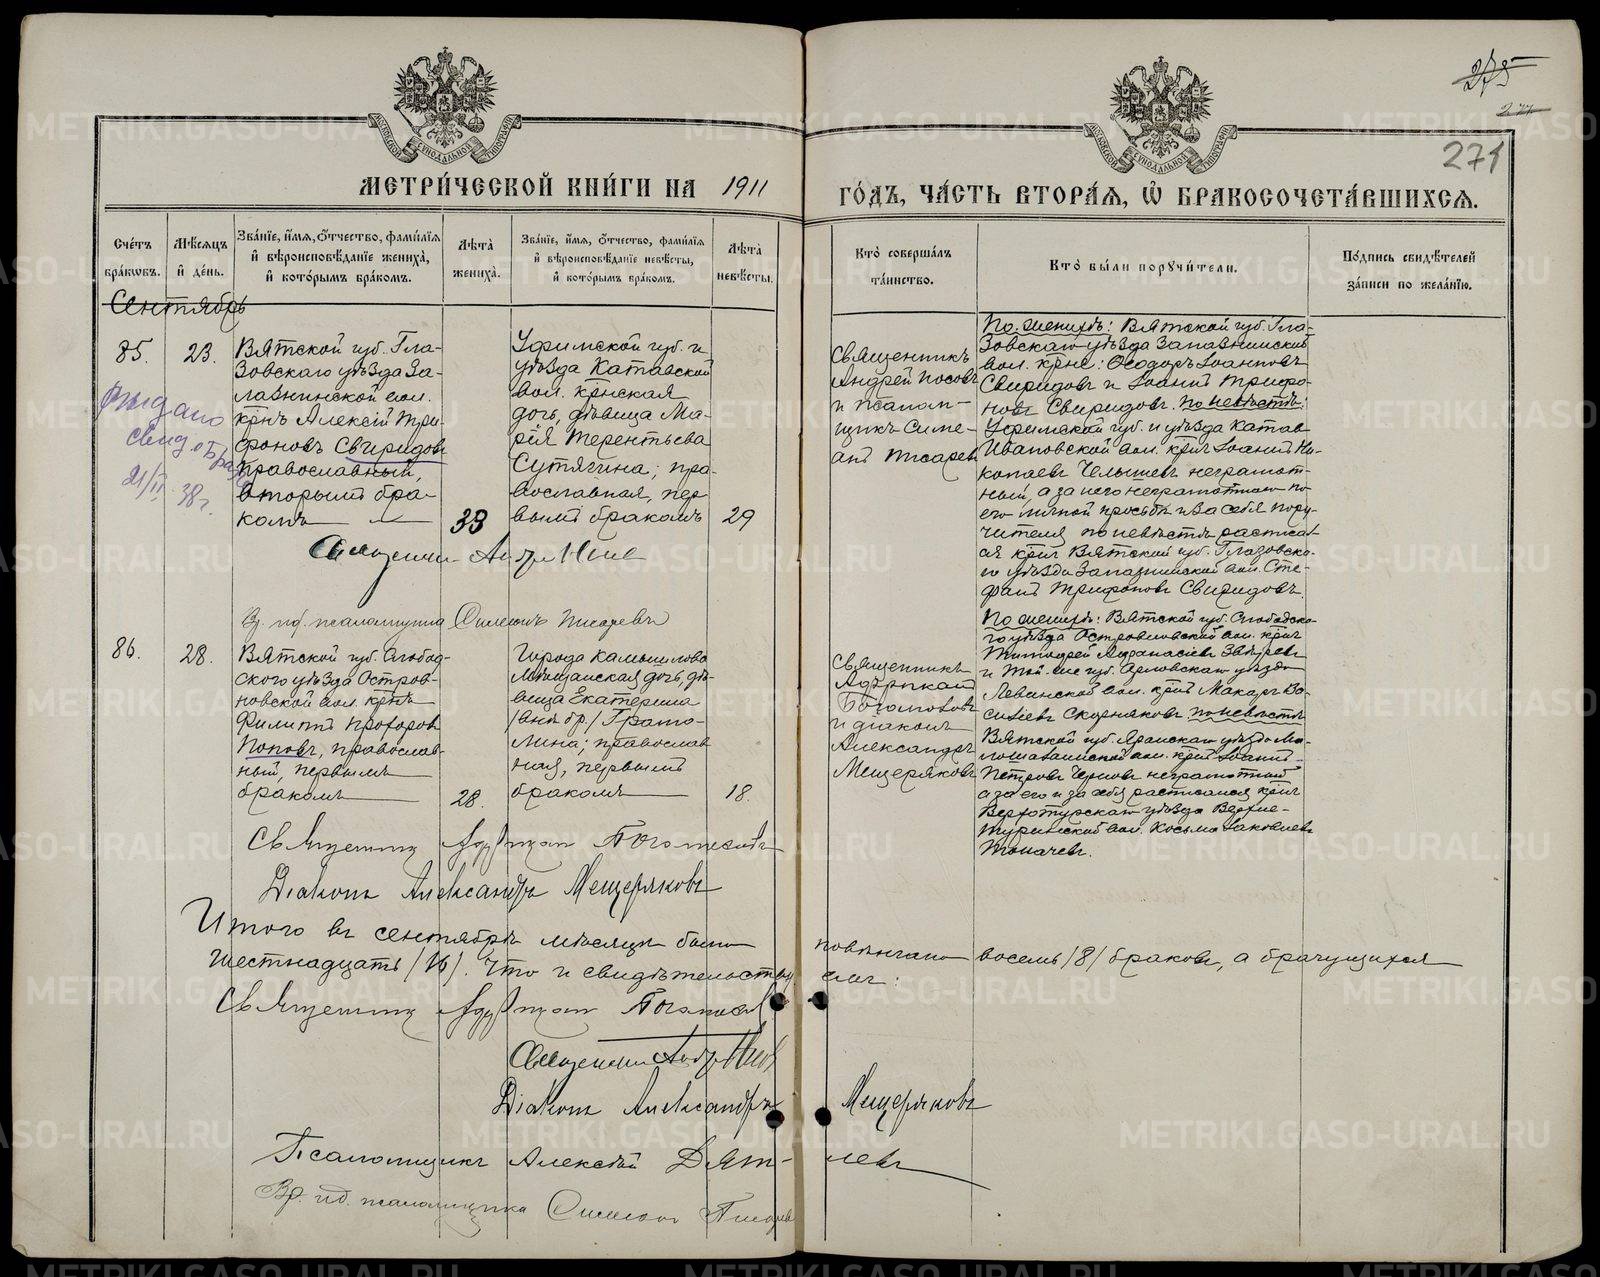 275
277
271
МЕТРИ́ЧЕСКОЙ КНИ́ГИ НА 1911 ГО́ДЪ, ЧА́СТЬ ВТОРА́Я, Ѡ БРАКОСОЧЕТА́ВШИХСЯ.
Сче́тъ бра́кѡвъ.
Мѣ́сяцъ и де́нь.
Зва́нїе, и́мя, ѻ́тчество, фами́лїя и вѣроисповѣ́данїе жениха̀, и кото́рымъ бра́комъ.
Лѣ́та жениха̀.
Зва́нїе, и́мя, ѻ́тчество, фами́лїя и вѣроисповѣ́данїе невѣ́сты, и кото́рымъ бра́комъ.
Лѣ́та невѣ́сты.
Кто̀ соверша́лъ та́инство.
Кто̀ бы́ли порꙋчи́тели.
По́дпись свидѣ́телей за́писи по жела́нїю.
Сентябрь
85.
23.
Вятской губ. Гла-
зовскаго уѣзда За-
лазнинской вол.
крнъ Алексій Три-
фоновъ Свиридовъ
православный,
вторымъ бра-
комъ
33
Уфимской губ. и
уѣзда Катавской
вол. крнская
дочь, дѣвица Ма-
рія Терентьева
Сутягина; пра-
вославная, пер
вымъ бракомъ
29
Священникъ
Андрей Носовъ
и псалом-
щикъ Симе-
онъ Писаревъ
По женихѣ: Вятской губ. Гла-
зовскаго уѣзда Залазнинской
вол. крне: Ѳеодоръ Іоанновъ
Свиридовъ и Іоаннъ Трифо-
новъ Свиридовъ. По невѣстѣ:
Уфимской губ. и уѣзда Катав
Ивановской вол. крнъ Іоаннъ Ни-
колаевъ Челышевъ неграмот-
ный, а за него неграмотнаго по
его личной просьбѣ и за себя пору-
чителя по невѣстѣ расписал
ся крнъ Вятской губ. Глазовска-
го уѣзда Залазнинской вол. Сте-
фанъ Трифоновъ Свиридовъ.
выдано
свид. о бра
21/II 38г.
Священникъ
Вр. и.д. псаломщика Симеонъ Писаревъ
86.
28.
Вятской губ. Слобод-
ского уѣзда Остров-
новской вол. крнъ
Филиппъ Прохоровъ
Поповъ, православ-
ный, первымъ
бракомъ
28.
Города Камышлова
мѣщанская дочь, дѣ-
вица Екатерина
/внѣ бр./ Грамо-
лина; православ
ная, первымъ
бракомъ
18.
Священникъ
Адріанъ
Богомоловъ
и діаконъ
Александръ
Мещеряковъ
По женихѣ: Вятской губ. Слободско-
го уѣзда Островновской вол. крнъ
Тимофей Аѳанасіевъ Звѣревъ
и той же губ. Орловскаго уѣзда
Левинской вол. крнъ Макаръ Ва-
силіевъ Скорняковъ по невѣстѣ
Вятской губ. Яранскаго уѣзда
вол. крнъ Іоаннъ
Петровъ неграмотный
а за его и за себя расписался крнъ
Верхотурскаго уѣзда Верхне-
Туринской вол. Косьма Іаковлевъ
Толмачевъ.
Священникъ Богомоловъ
Діаконъ Александръ Мещеряковъ
Итого въ сентябрѣ мѣсяцѣ было повѣнчано восемь /8/ браковъ, а брачущихся
шестнадцать /16/. Что и свидѣтельствуемъ:
Священникъ Богомоловъ
Священникъ
Діаконъ Александръ Мещеряковъ
Псаломщикъ Алексѣй Дятлевъ
Вр. и.д. псаломщика Симеонъ Писаревъ